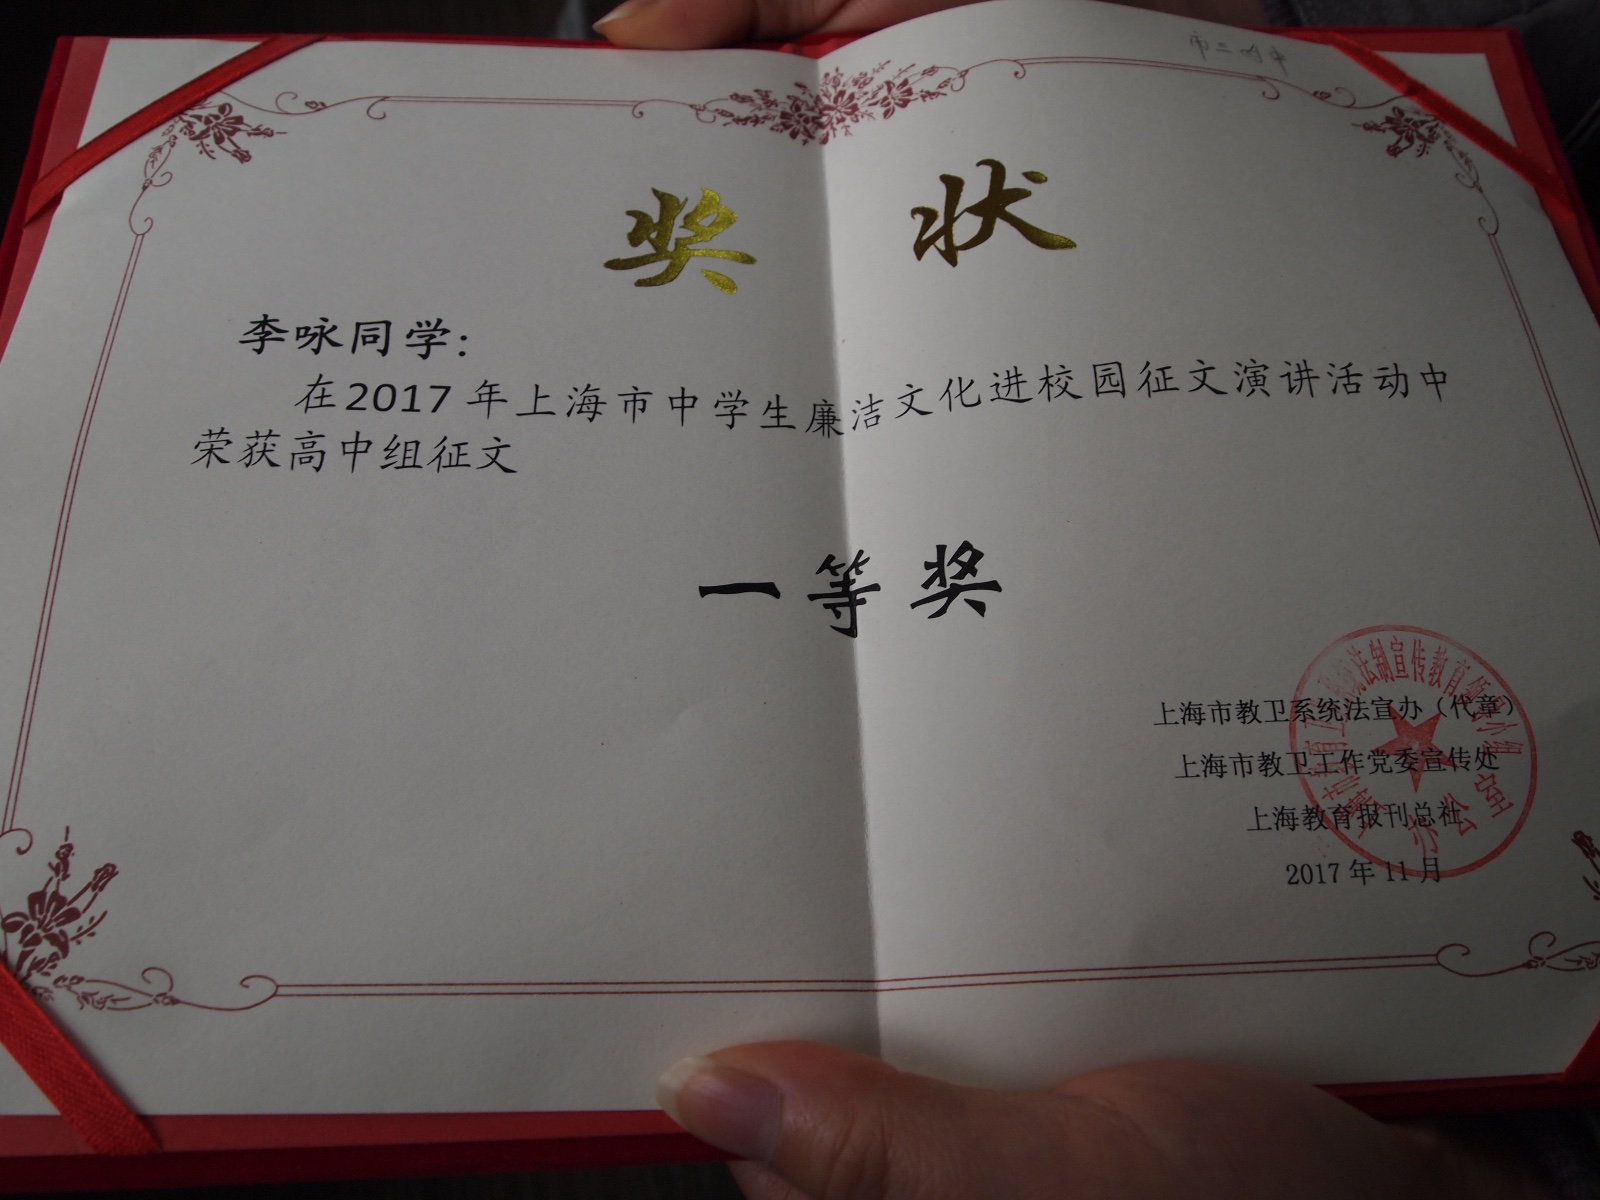 市三女中
奖状
李咏同学:
在2017年上海市中学生廉洁文化进校园征文演讲活动中
荣获高中组征文
一等奖
上海市教卫系统法宣办（代章）
上海市教卫工作党委宣传处
上海教育报刊总社
2017年11月
法制宣传教育
办公室